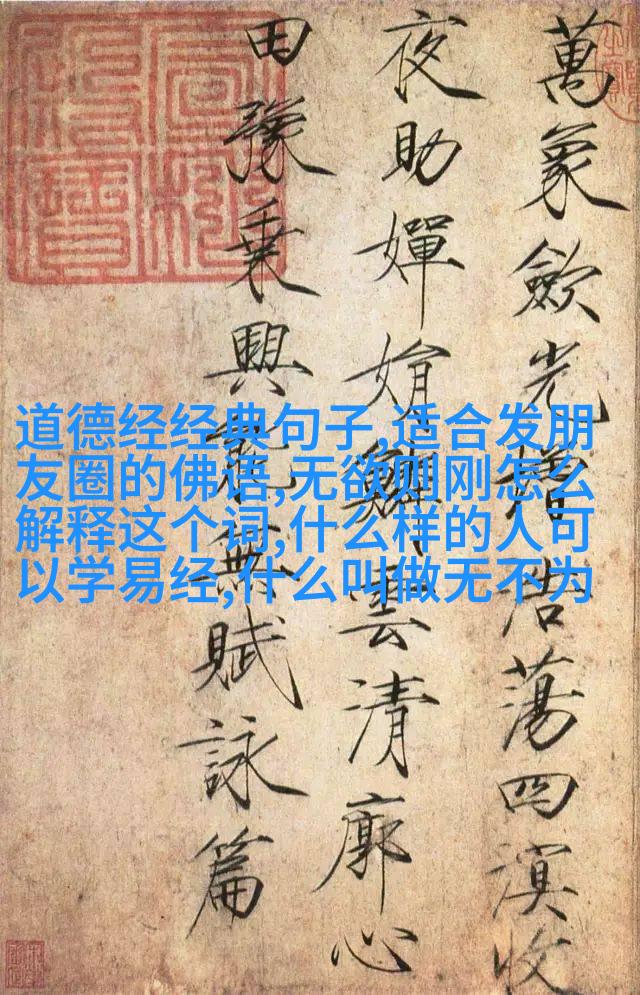 萬象歛光增浩蕩四溟收
夜助嬋娟雲清廓心
田豫乗興能無賦詠篇
道德经经典句子,适合发朋
友圈的佛语,无欲则刚怎么
解释这个词,什么样的人可
以学易经,什么叫做无不为